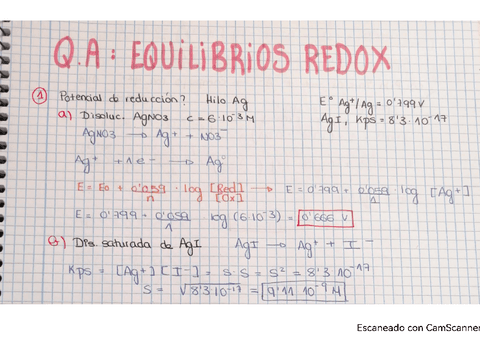 Q.A: EQUILIBRIOS REDOX
① Potencial de reducción? Hilo Ag E° Ag⁺/Ag = 0'799 V
a) Disoluc. AgNO3 c = 6·10⁻³ M AgI, Kps = 8'3·10⁻¹⁷
AgNO3 → Ag⁺ + NO3⁻
Ag⁺ + 1e⁻ → Ag°
E = E0 + 0'059/n · log [Red]/[Ox] → E = 0'799 + 0'059/1 · log [Ag⁺]
E = 0'799 + 0'059/1 log (6·10⁻³) = 0'666 V
b) Dis. saturada de AgI AgI → Ag⁺ + I⁻
Kps = [Ag⁺][I⁻] = S·S = S² = 8'3·10⁻¹⁷
S = √8'3·10⁻¹⁷ = 9'11·10⁻⁹ M
Escaneado con CamScanner